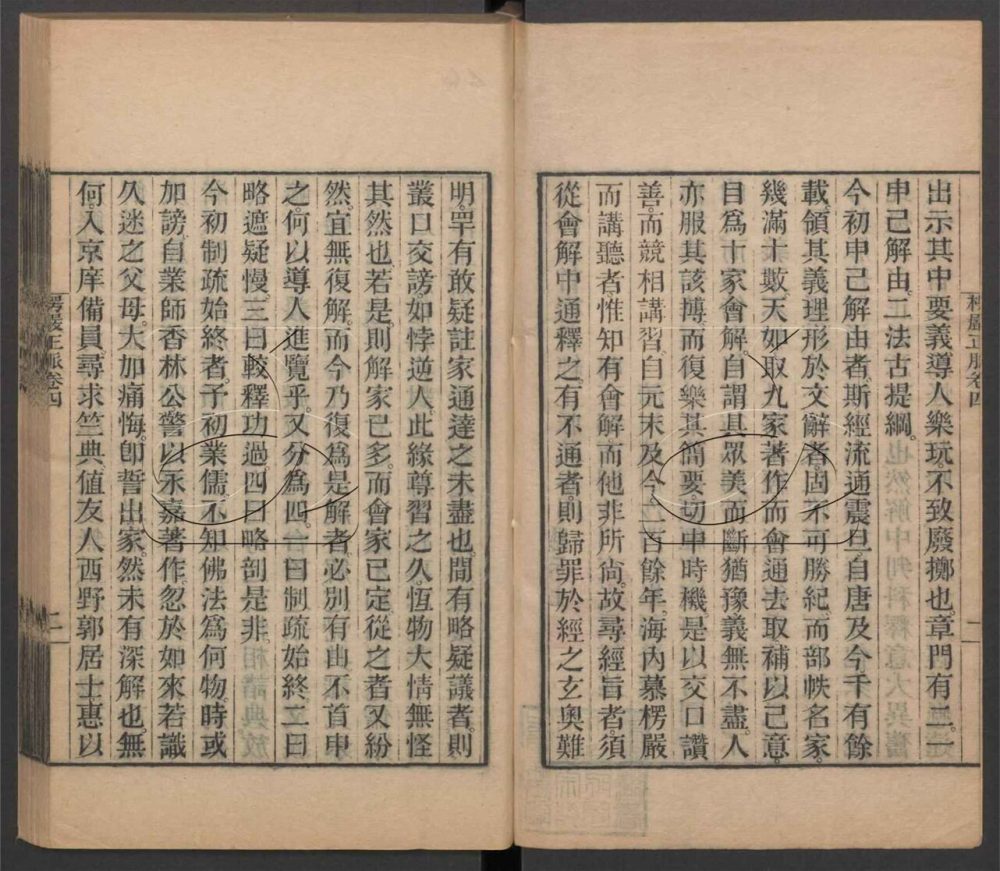 出示其中要義導人樂玩不致廢擲也章門有二一
申己解由二法古提綱
今初申己解由者斯經流通震旦自唐及今千有餘
載領其義理形於文辭者固不可勝紀而部帙名家
幾滿十數天如取九家著作而會通去取補以己意
目爲十家會解自謂具眾美而斷猶豫義無不盡人
亦服其該博而復樂其簡要切中時機是以交口讚
善而競相講習自元末及今二百餘年海內慕楞嚴
而講聽者惟知有會解而他非所尙故尋經旨者須
從會解中通釋之有不通者則歸罪於經之玄奧難
明罕有敢疑註家通達之未盡也間有略疑議者則
叢口交謗如悖逆人此緣尊習之久恆物大情無怪
其然也若是則解家已多而會家已定從之者又紛
然宜無復解而今乃復爲是解者必別有由不首申
之何以導人進覽乎又分爲四一曰制疏始終二曰
略遮疑慢三曰較釋功過四曰略剖是非
今初制疏始終者予初業儒不知佛法爲何物時或
加謗自業師香林公警以永嘉著作忽於如來若識
久迷之父母大加痛悔卽誓出家然未有深解也無
何入京庠備員尋求竺典値友人西野郭居士惠以
楞嚴正脈卷四
二